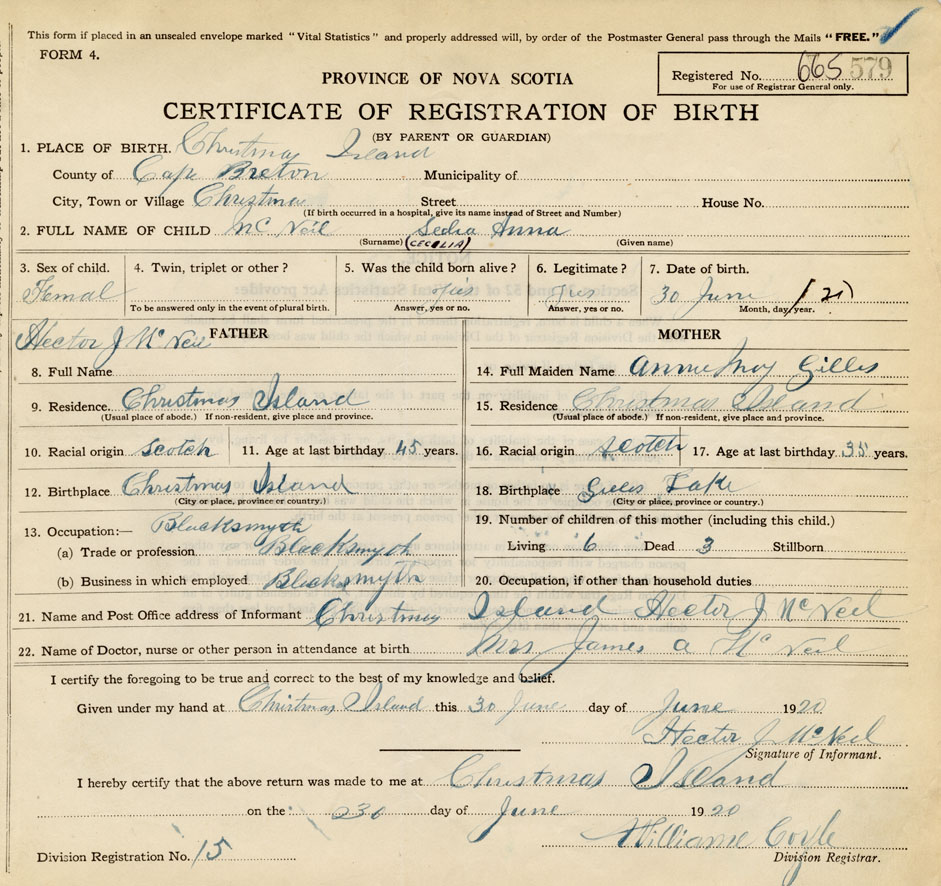 This form if placed in an unsealed envelope marked "Vital Statistics" and properly addressed will, by order of the Postmaster General pass through the Mails "FREE."
FORM 4.
Registered No. 665 579
For use of Registrar General only.
PROVINCE OF NOVA SCOTIA
CERTIFICATE OF REGISTRATION OF BIRTH
(BY PARENT OR GUARDIAN)
1. PLACE OF BIRTH. Christmas Island
County of Cape Breton Municipality of
City, Town or Village Christmas Street House No.
(If birth occurred in a hospital, give its name instead of Street and Number)
2. FULL NAME OF CHILD Mc Neil Sedia Anna
(Surname) (CECELIA) (Given name)
3. Sex of child. 4. Twin, triplet or other? 5. Was the child born alive? 6. Legitimate? 7. Date of birth.
Femal yes yes 30 June /20
To be answered only in the event of plural birth. Answer, yes or no. Answer, yes or no. Month, day, year.
Hector J McNeil FATHER MOTHER
8. Full Name 14. Full Maiden Name Annie May Gillis
9. Residence Christmas Island 15. Residence Christmas Island
(Usual place of abode.) If non-resident, give place and province. (Usual place of abode.) If non-resident, give place and province.
10. Racial origin Scotch 11. Age at last birthday 45 years. 16. Racial origin Scotch 17. Age at last birthday 35 years.
12. Birthplace Christmas Island 18. Birthplace Gilles Lake
(City or place, province or country.) (City or place, province or country.)
13. Occupation:— Blacksmyth 19. Number of children of this mother (including this child.)
(a) Trade or profession Blacksmyth Living 6 Dead 3 Stillborn
(b) Business in which employed Blacksmyth 20. Occupation, if other than household duties
21. Name and Post Office address of Informant Christmas Island Hector J McNeil
22. Name of Doctor, nurse or other person in attendance at birth Mrs James A McNeil
I certify the foregoing to be true and correct to the best of my knowledge and belief.
Given under my hand at Christmas Island this 30 June day of June 1920
Hector J McNeil
Signature of Informant.
I hereby certify that the above return was made to me at Christmas Island
on the 30 day of June 1920
Williame Coyle
Division Registrar.
Division Registration No. 15